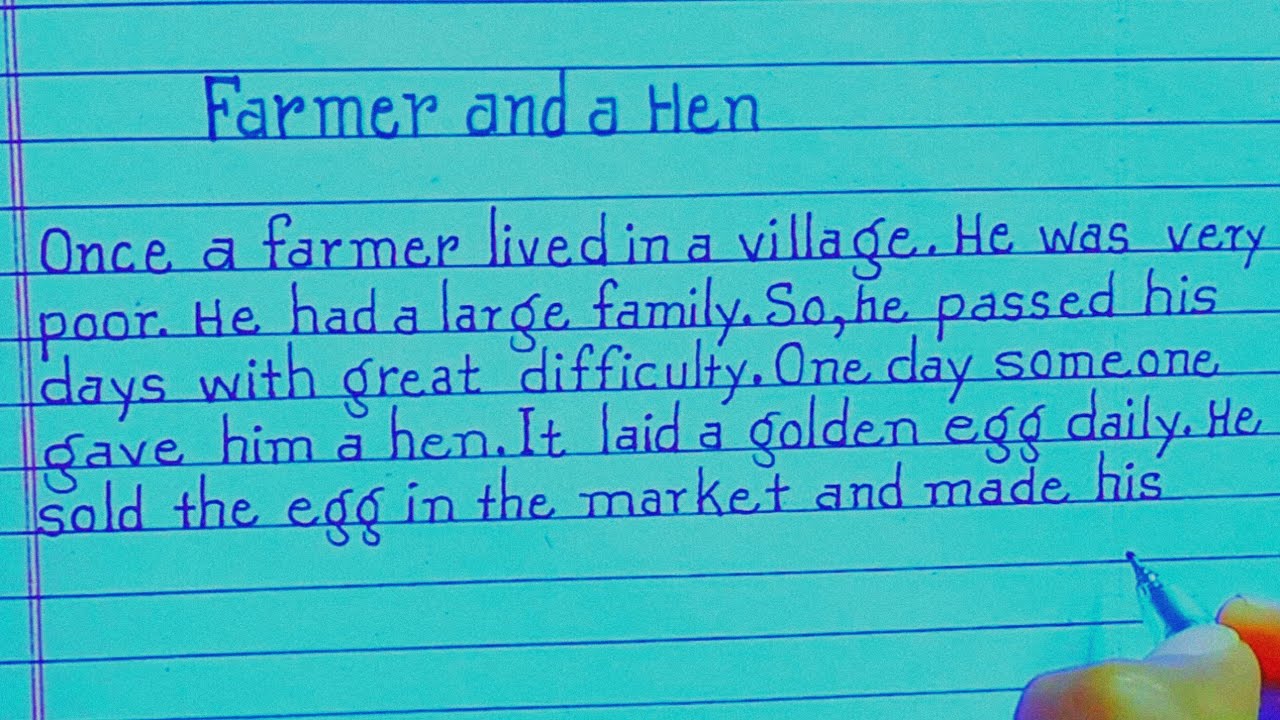 Farmer and a Hen
Once a farmer lived in a village. He was very
poor. He had a large family. So, he passed his
days with great difficulty. One day someone
gave him a hen. It laid a golden egg daily. He
sold the egg in the market and made his